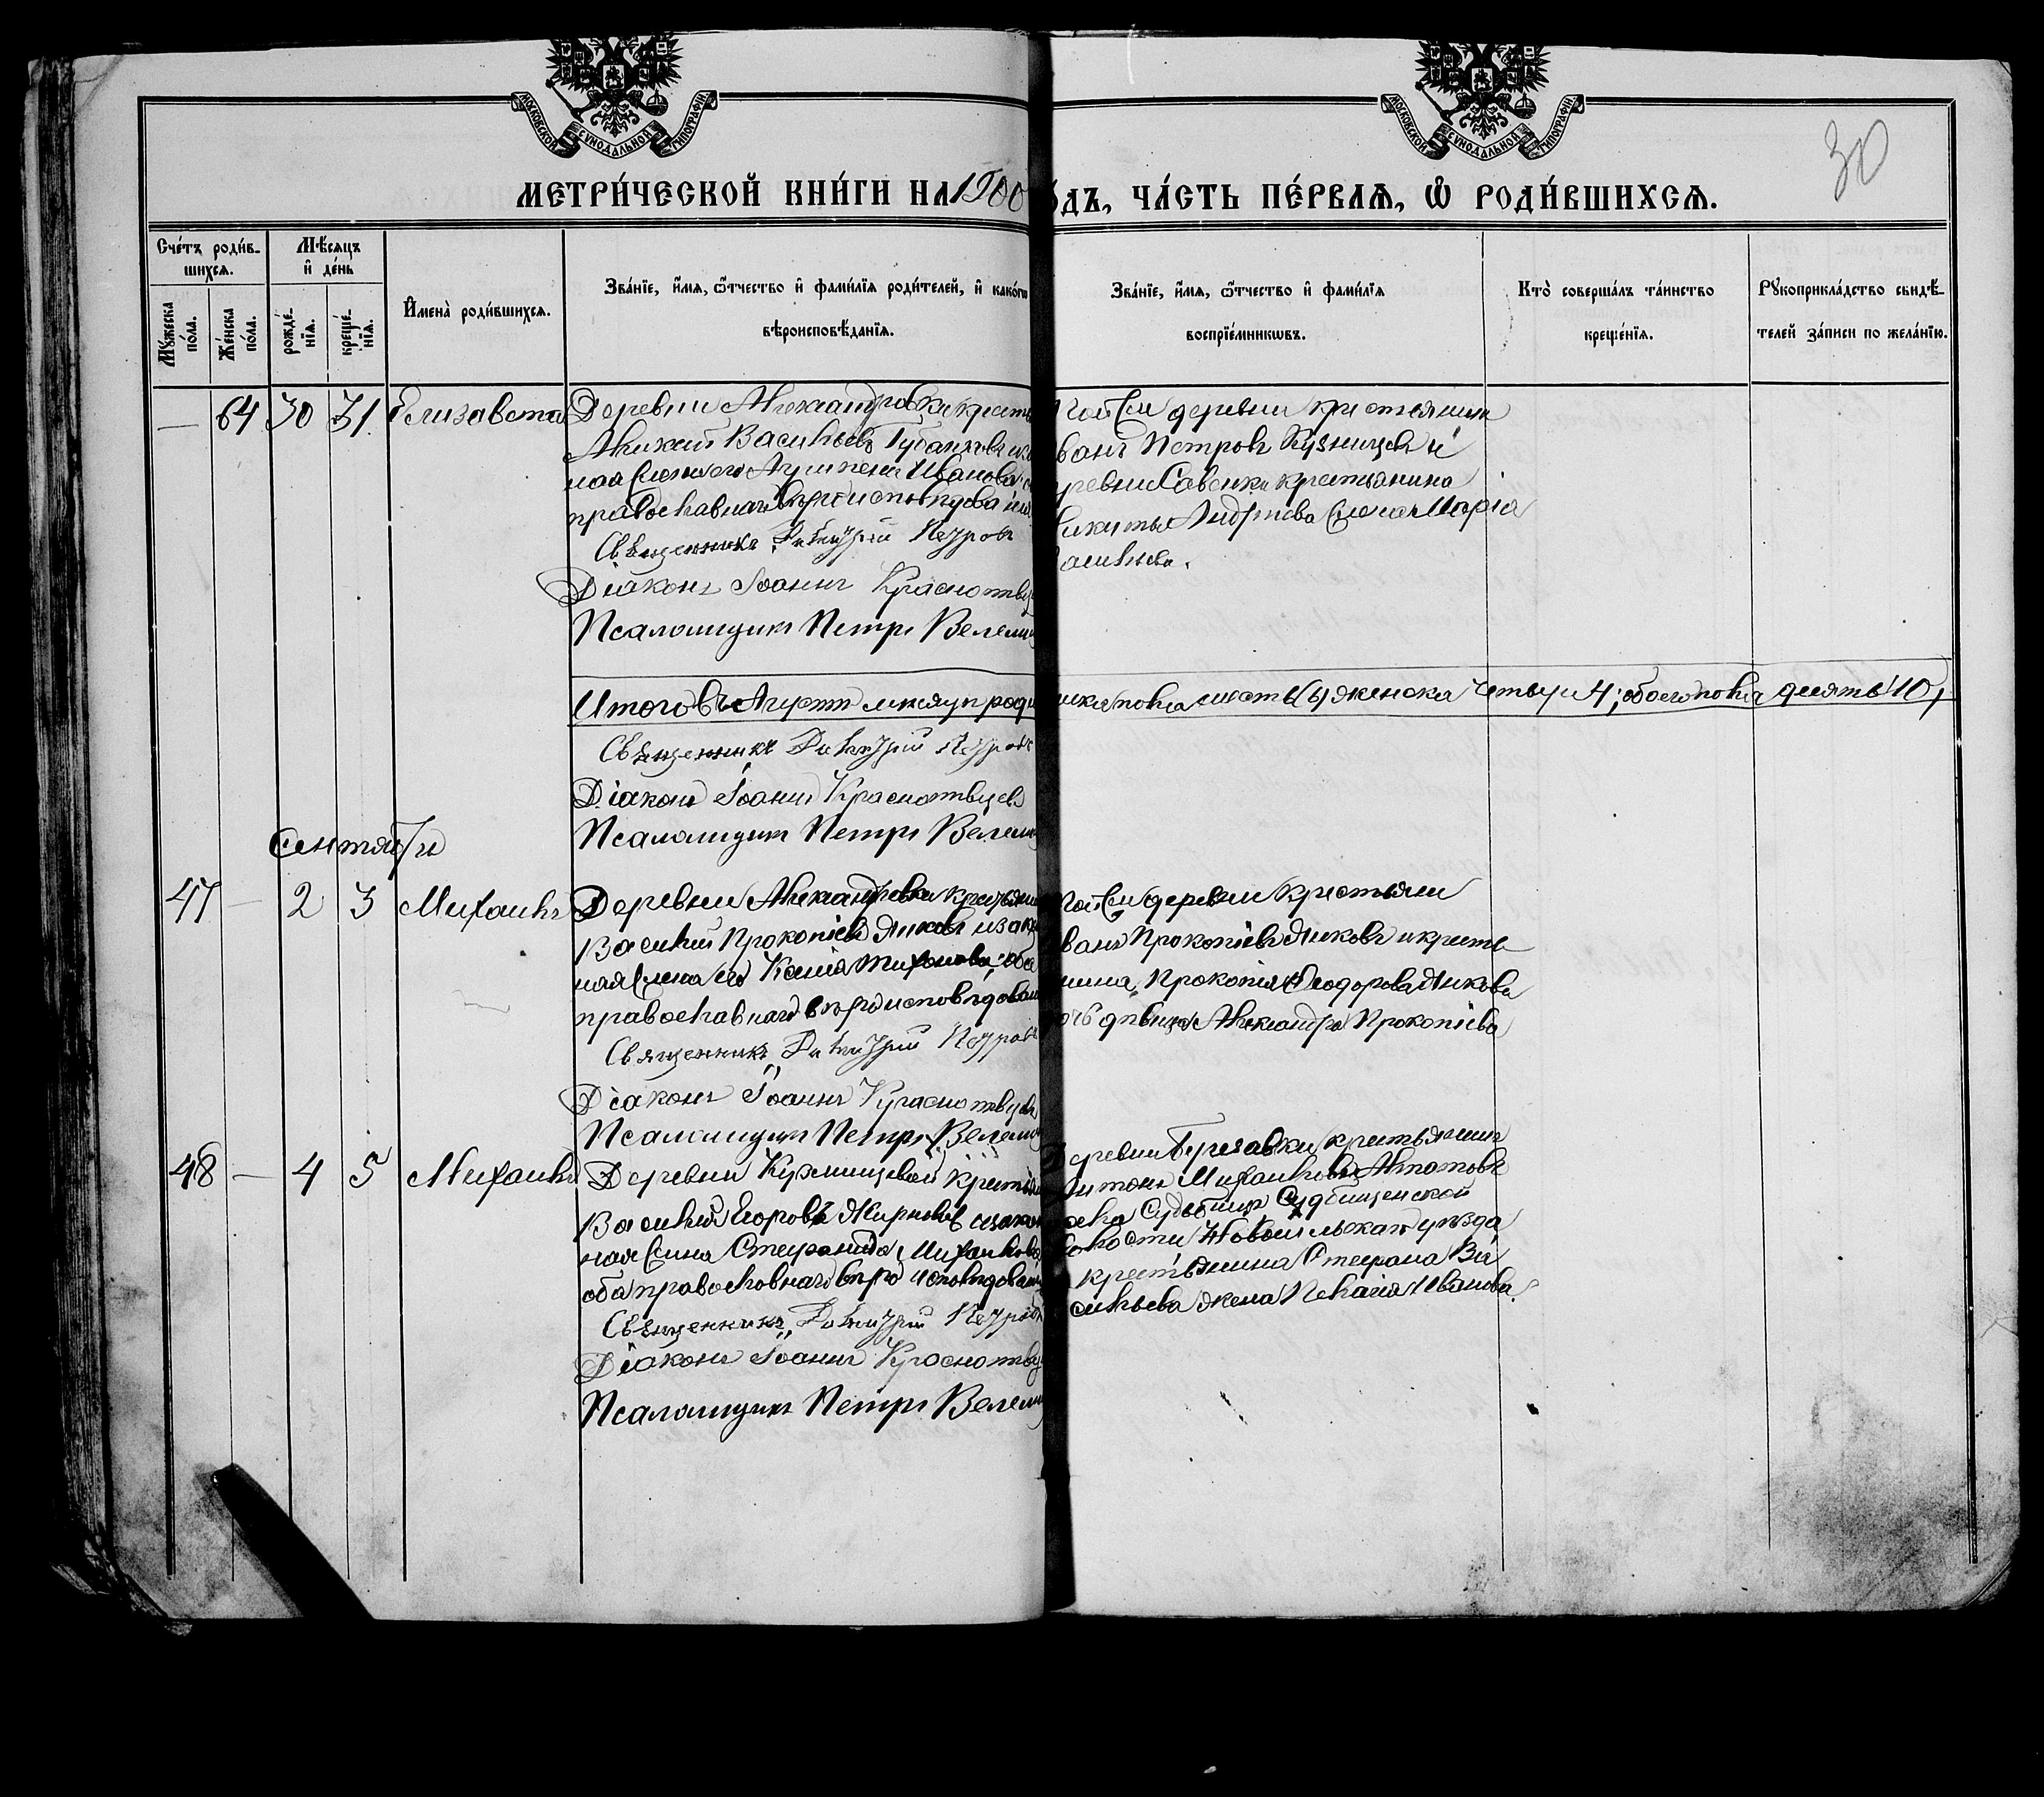 МОСКОВСКОЙ СѴНОДАЛЬНОЙ ТИПОГРАФІИ
МОСКОВСКОЙ СѴНОДАЛЬНОЙ ТИПОГРАФІИ
30
МЕТРИ́ЧЕСКОЙ КНИ́ГИ НА 1900
ДЪ, ЧА́СТЬ ПЕ́РВАѦ, Ѡ҆ РОДИ́ВШИХСѦ.
Сче́тъ роди́в-
шихсѧ.
Мꙋ́жеска по́ла.
Же́нска по́ла.
Мѣ́сяцъ
и҆ де́нь
рожде́-
нїѧ.
креще́-
нїѧ.
И҆мена̀ роди́вшихсѧ.
Зва́нїе, и҆́мѧ, ѻ҆́тчество и҆ фами́лїѧ роди́телей, и҆ како́гѡ
вѣроисповѣ́данїѧ.
Зва́нїе, и҆́мѧ, ѻ҆́тчество и҆ фами́лїѧ
воспрїе́мникѡвъ.
Кто̀ соверша́лъ та́инство
креще́нїѧ.
Рꙋкоприкла́дство свидѣ́-
телей за́писи по жела́нїю.
— 64 30 31 Елизавета
Деревни Александровки крест
Васильевъ
ная жена его Иванова
православнаго вѣроисповѣдані
Священникъ Димитрій Петровъ
Діаконъ Іоаннъ Краснотв
Псаломщикъ Петръ Велем
той же деревни крестьянинъ
ванъ Петровъ Кузнецевъ и
ревни Савенки крестьянина
икиты Андреева жена Марія
асильева.
Итого въ Августѣ мѣсяцѣ роди
ска пола шесть 6, женска четыре 4; обоего пола десять 10,
Священникъ Димитрій Петровъ
Діаконъ Іоаннъ Краснотвцевъ
Псаломщикъ Петръ Велем
Сентябрь
47 — 2 3 Михаилъ
Деревни Александровки крестьянин
Василій Прокопіевъ Янковъ и зак
ная жена его Ксенія Тихонова, оба
православнаго вѣроисповѣдані
Священникъ Димитрій Петровъ
Діаконъ Іоаннъ Краснотвцевъ
Псаломщикъ Петръ Велем
той же деревни крестьянин
ванъ Прокопіевъ Янковъ и крестья
нина Прокопія Ѳеодорова Янкова
очь дѣвица Александра Прокопіева
48 — 4 5 Михаилъ
Деревни крестьян
Василій Егоровъ и закон
ная жена Стефанида Михайлова
оба православнаго вѣроисповѣдані
Священникъ Димитрій Петровъ
Діаконъ Іоаннъ Краснотв
Псаломщикъ Петръ Велем
еревни Березовки крестьянинъ
нтонъ Михайловъ
ела Судбищъ Судбищенской
олости Новосильскаго уѣзда
крестьянина Стефана Ва
сильева жена Пелагія Иванова.